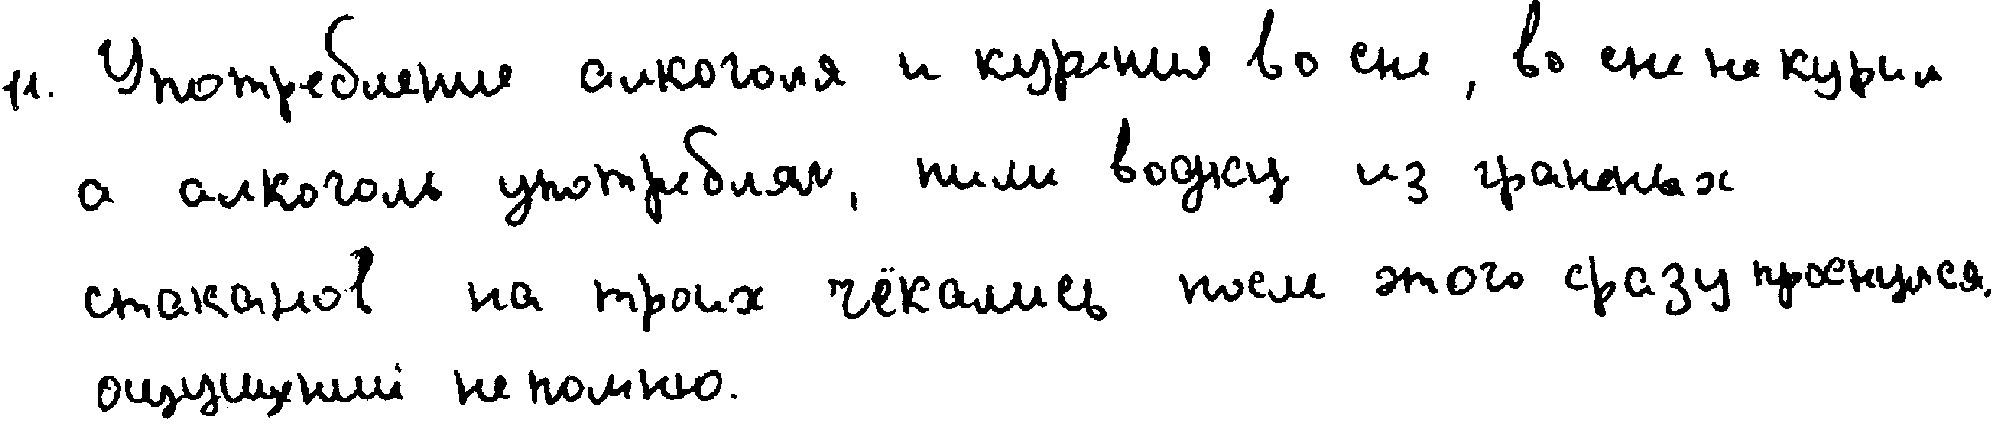 11. Употребление алкоголя и курения во сне, во сне не курил
а алкоголь употреблял, пили водку из граненых
стаканов на троих чёкались после этого сразу проснулся,
ощущений не помню.